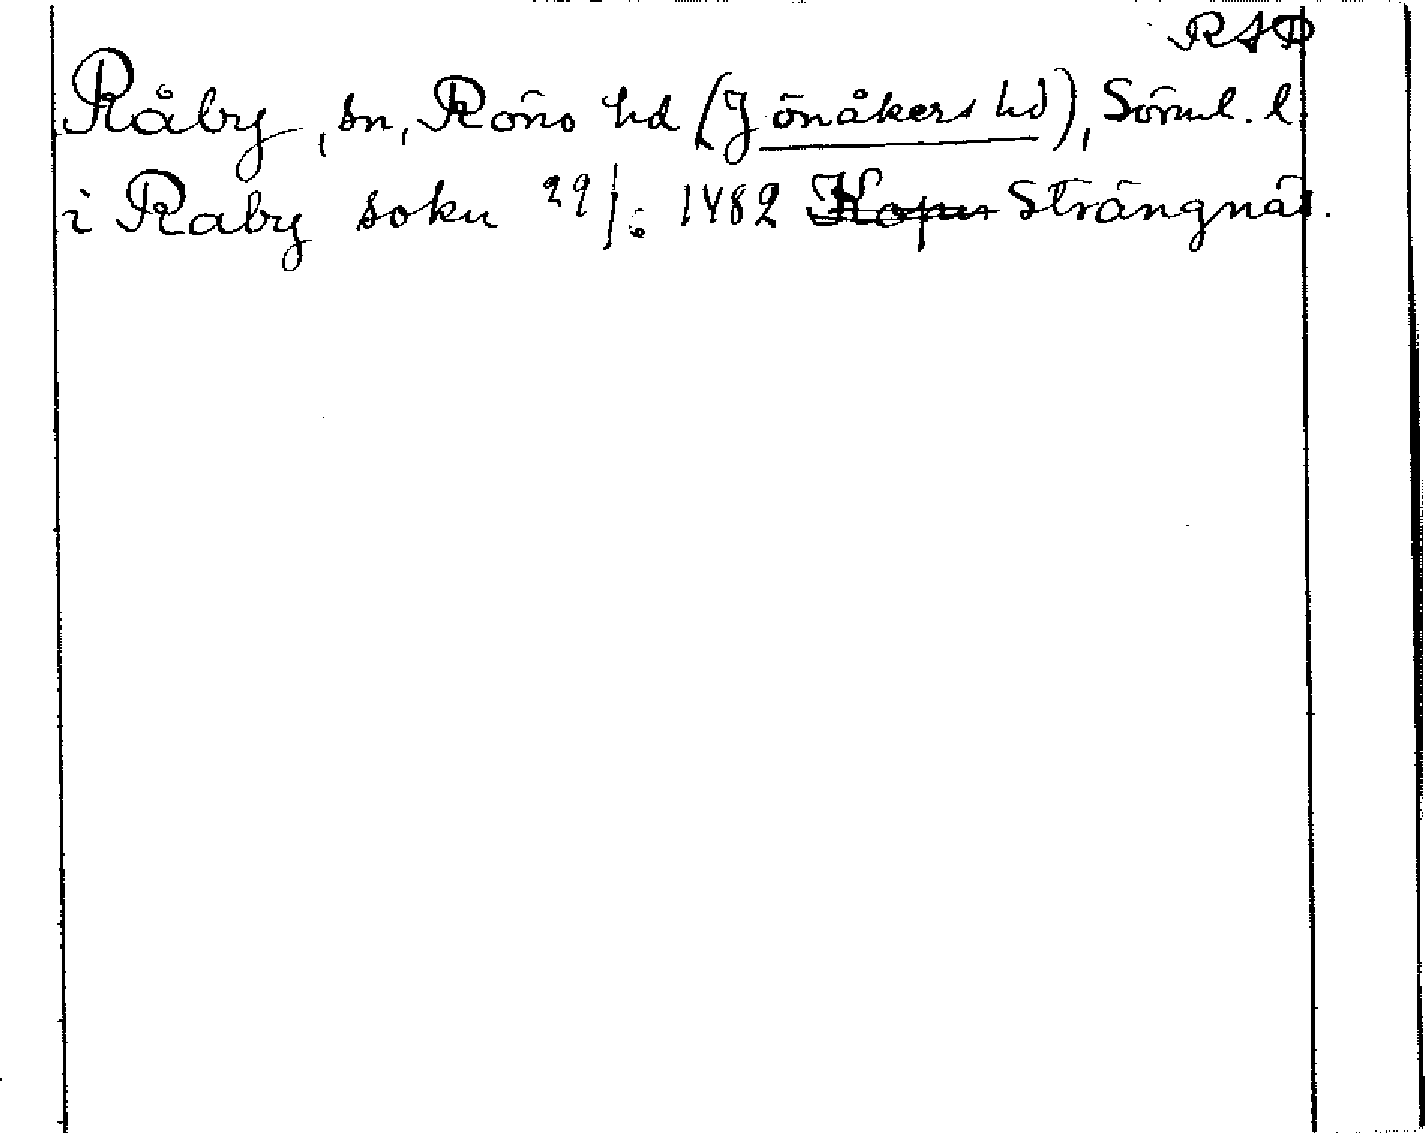 RAP
Råby, sn, Rönö hd (Jönåkers hd), Söml. l.
i Raby sokn 29/6 1482 Strängnäs.